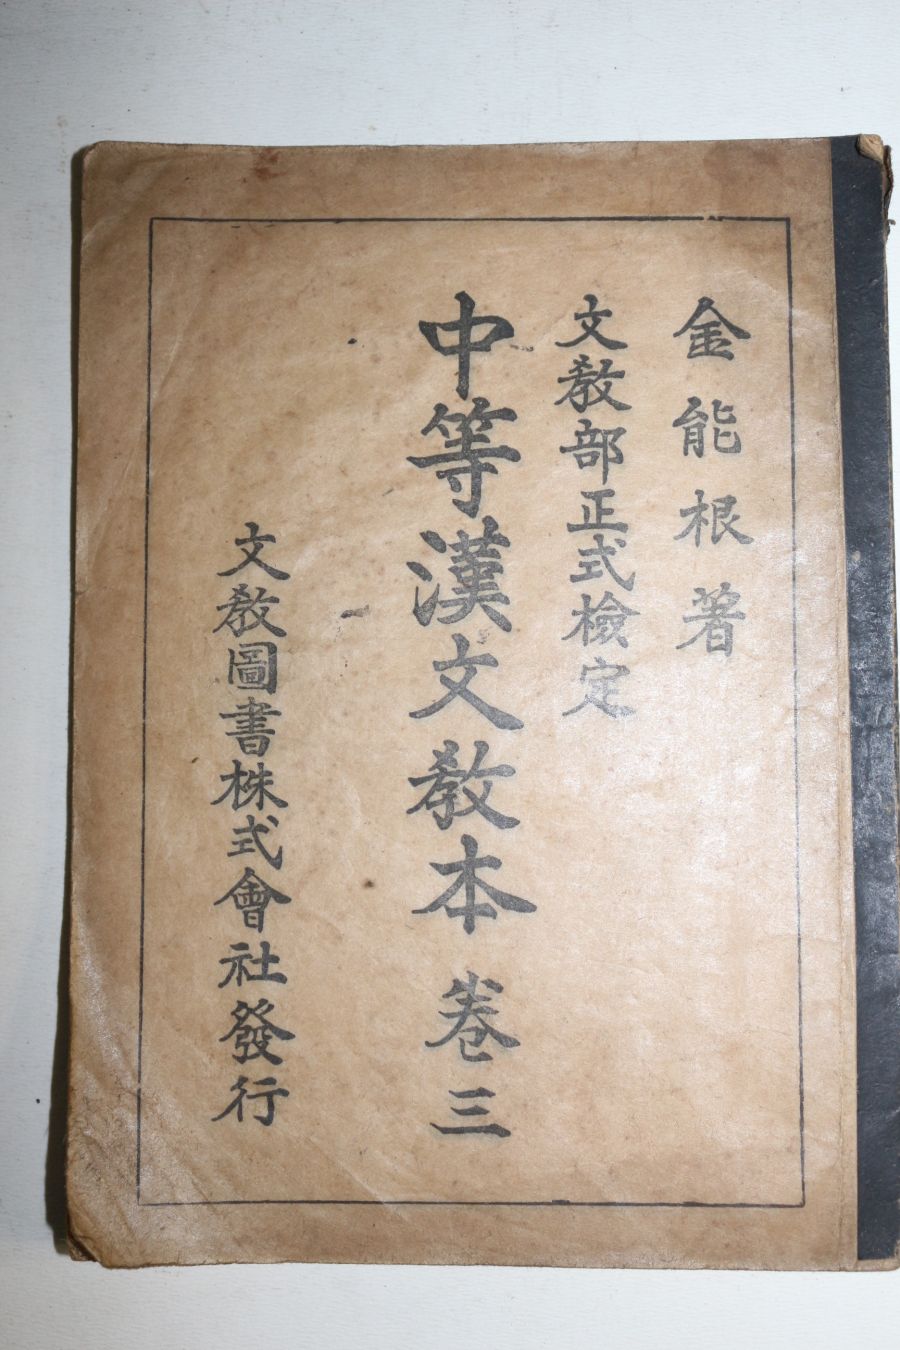 金能根著
文教部正式檢定
中等漢文教本 卷三
文教圖書株式會社發行